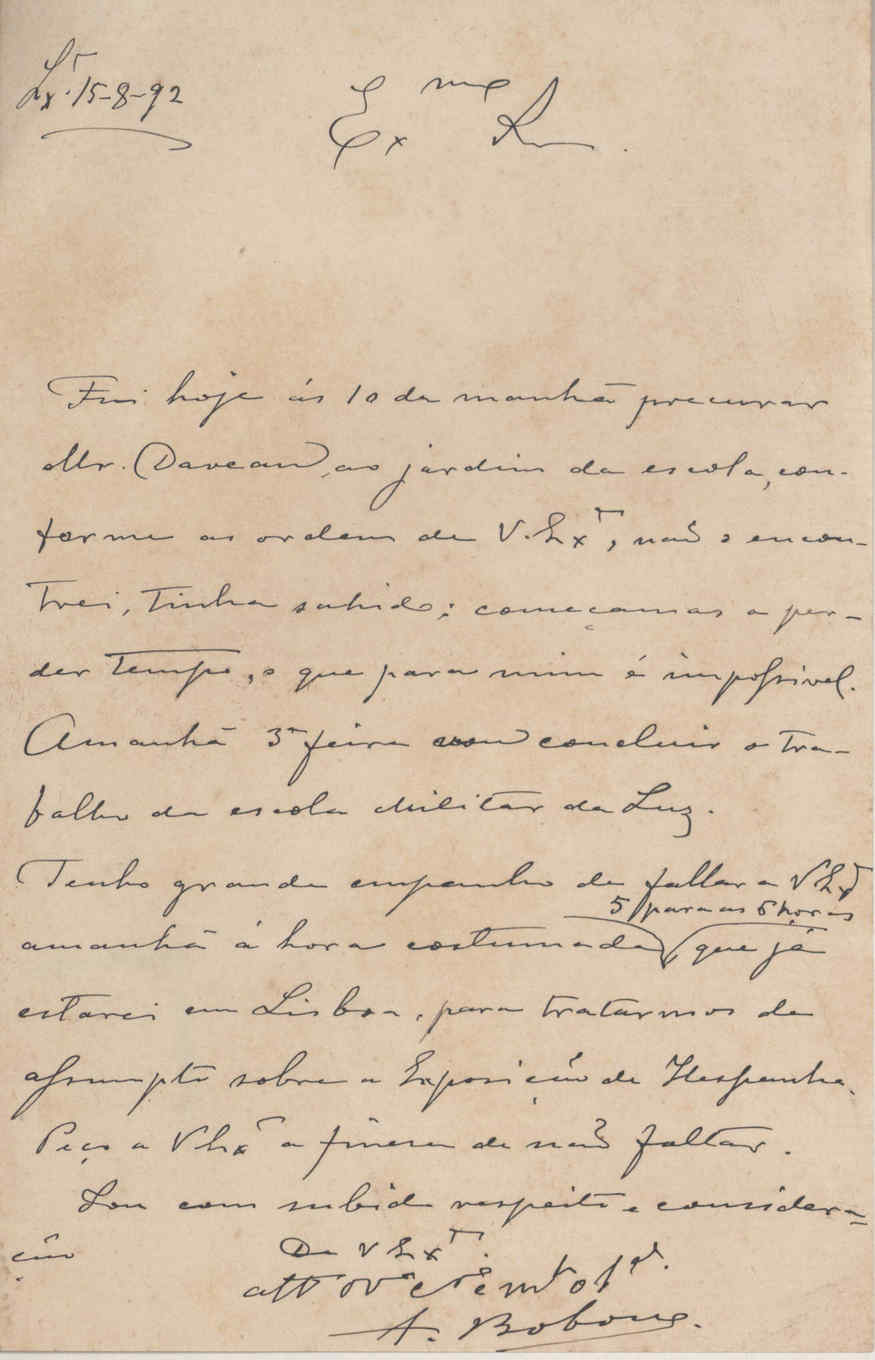 Lxª 15-8-92
Exmo Sr.
Fui hoje ás 10 da manhã procurar
Mr. Daveau, ao jardim da escola, con-
forme as ordens de V. Exª, não o encon-
trei, tinha sahido; começamos a per-
der tempo, o que para mim é impossivel.
Amanhã 3ª feira vou concluir o tra-
balho da escola Militar da Luz.
Tenho grande empenho de fallar a V Exª
5 para as 6 horas
amanhã á hora costumada que já
estarei em Lisboa, para tratarmos de
assumpto sobre a Exposição de Hespanha.
Peço a V Exª a fineza de não faltar.
Sou com subido respeito e considera-
ção
De V Exª
A. Bobone.